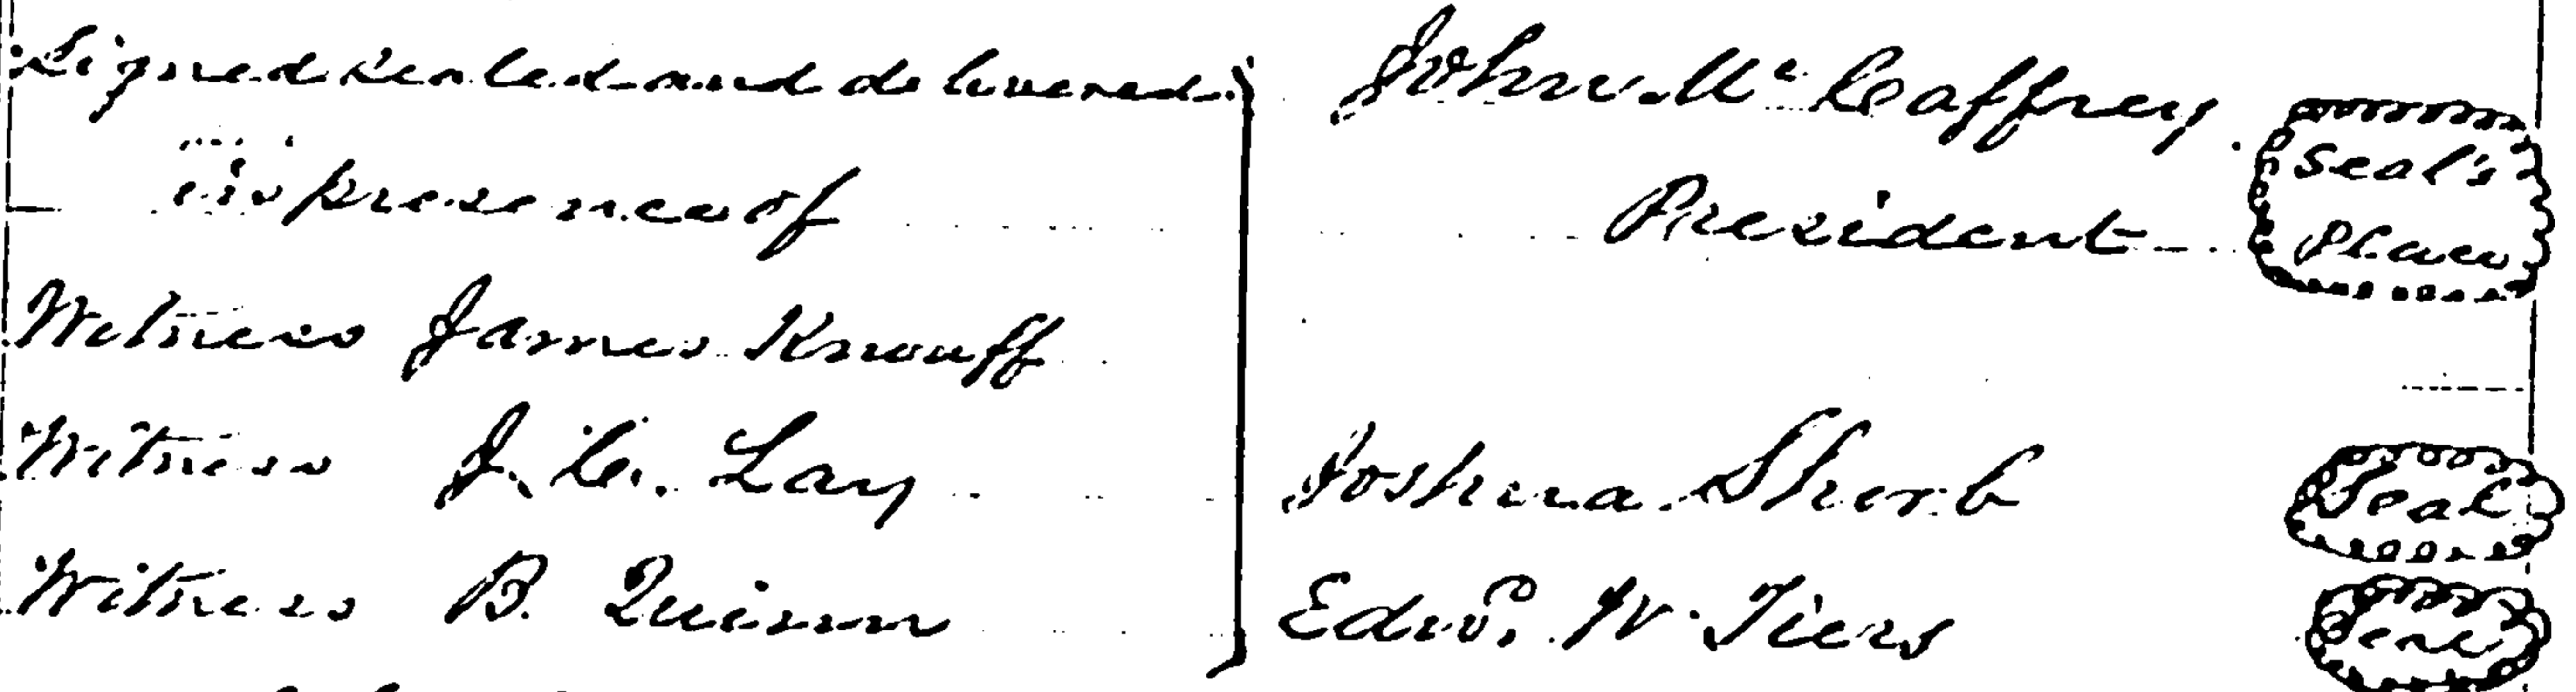 Signed sealed and delivered
in presence of
Witness James Knouff
Witness J. C. Lay
Witness B. Quinn
John McCaffrey
President
Seal's
Place
Joshua Shorb
Seal
Edwd. W. Tiers
Seal